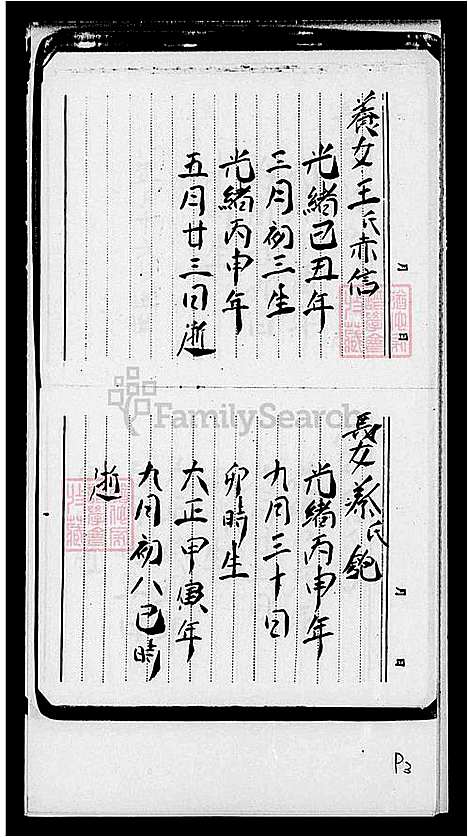 養女王氏赤信
光緒己丑年
三月初三生
光緒丙申年
五月廿三日逝
月 日
長女蔡氏鉋
光緒丙申年
九月三十日
卯時生
大正甲寅年
九月初八巳時
逝
月 日
FamilySearch
P3